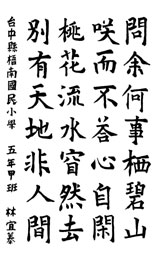 問余何事栖碧山
咲而不答心自閑
桃花流水窅然去
別有天地非人間
台中縣梧南國民小學　五年甲班　林宜蓁